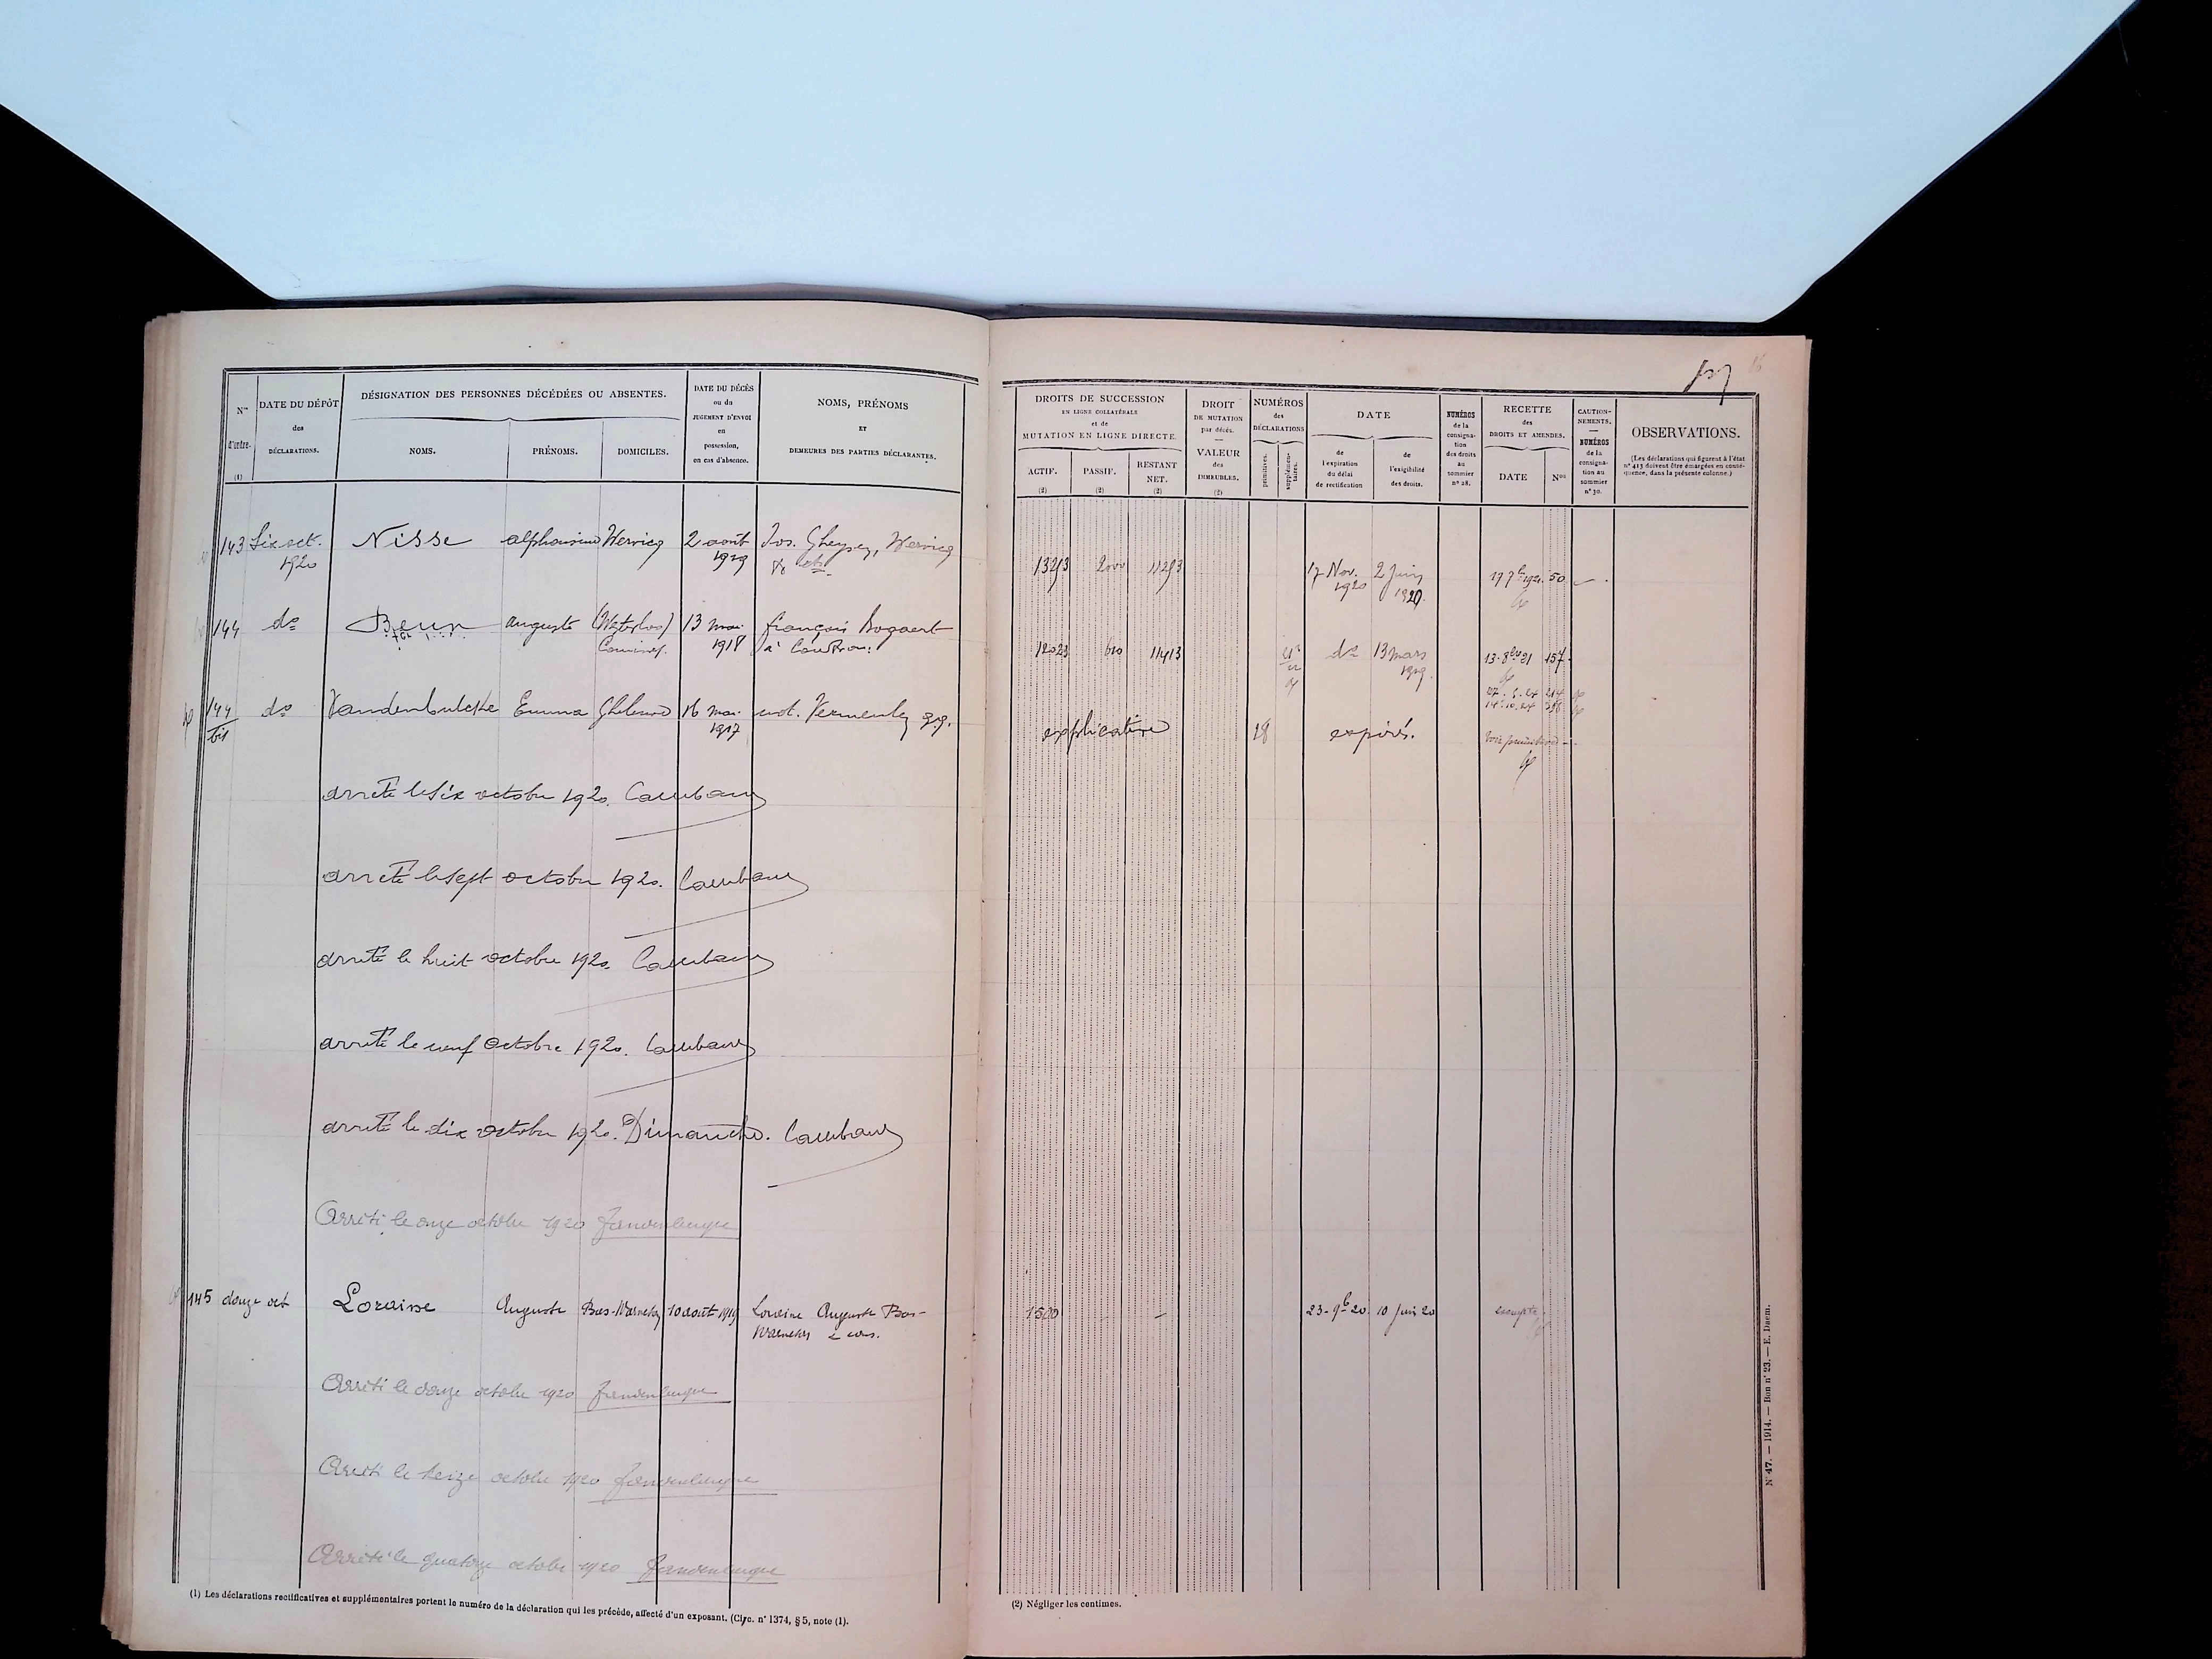 Nos d'ordre. (1)
DATE DU DÉPÔT des DÉCLARATIONS.
DÉSIGNATION DES PERSONNES DÉCÉDÉES OU ABSENTES.
NOMS.
PRÉNOMS.
DOMICILES.
DATE DU DÉCÈS ou du JUGEMENT D'ENVOI en possession, en cas d'absence.
NOMS, PRÉNOMS ET DEMEURES DES PARTIES DÉCLARANTES.
143 Six oct. 1920 Nisse alphonsine Wervicq 2 août 1919 Jos. Gheysen, Wervicq
144 do Beun auguste (Waterloo) Comines. 13 mai 1918 françois Bogaert à
144 bis do Vandenbulcke Emma Gheluwe 16 mai 1917 not. Vermeulen
arrêté le six octobre 1920.
arrêté le sept octobre 1920.
arrêté le huit octobre 1920.
arrêté le neuf octobre 1920.
arrêté le dix octobre 1920. Dimanche.
Arrêté le onze octobre 1920
145 douze oct Loraine Auguste Bas-Warneton 10 août 1919 Loraine Auguste Bas-
Warneton & cons.
Arrêté le douze octobre 1920
Arrêté le treize octobre 1920
Arrêté le quatorze octobre 1920
(1) Les déclarations rectificatives et supplémentaires portent le numéro de la déclaration qui les précède, affecté d'un exposant. (Circ. n° 1374, § 5, note (1).
DROITS DE SUCCESSION
EN LIGNE COLLATÉRALE
et de
MUTATION EN LIGNE DIRECTE.
ACTIF. (2)
PASSIF. (2)
RESTANT NET. (2)
DROIT DE MUTATION par décès. — VALEUR des IMMEUBLES. (2)
NUMÉROS des DÉCLARATIONS
primitives.
supplémentaires.
DATE
de l'expiration du délai de rectification
de l'exigibilité des droits.
NUMÉROS de la consignation des droits au sommier n° 28.
RECETTE des DROITS ET AMENDES.
DATE
Nos
CAUTIONNEMENTS. — NUMÉROS de la consignation au sommier n° 30.
OBSERVATIONS.
(Les déclarations qui figurent à l'état n° 413 doivent être émargées en conséquence, dans la présente colonne.)
13293 2000 11293 17 Nov. 1920 2 Juin 1920. 50
12023 610 11413 do 13 mars 1919. 13-8bre 21 157
explicative 18 expirés.
1500 — 23-9b 20 10 juin 20 exempte
(2) Négliger les centimes.
N° 47. — 1914. — Bon n° 23. — E. Daem.